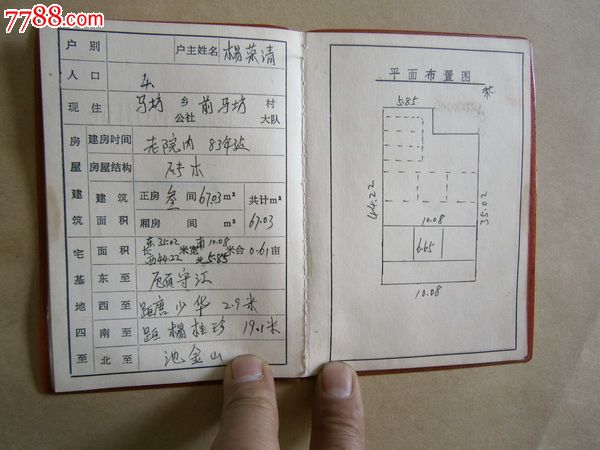 7788.com
中国收藏热线
户别 户主姓名 楊荣清
人口 4
现住 马坊 乡公社 前马坊 村大队
房屋 建房时间 老院内 83年建
房屋结构 砖木
建筑 建筑面积 正房 叁 间 67.03 m² 共计m²
厢房 间 m² 67.03
宅基地四至 面积 东35.02 长 西44.22 米 宽 南10.08 北5.85 米合 0.61 亩
东至 顾守江
西至 距唐少华 2.9米
南至 距楊桂珍 19.1米
北至 池金山
平面布置图
北
5.85
44.22
35.02
10.08
6.65
10.08